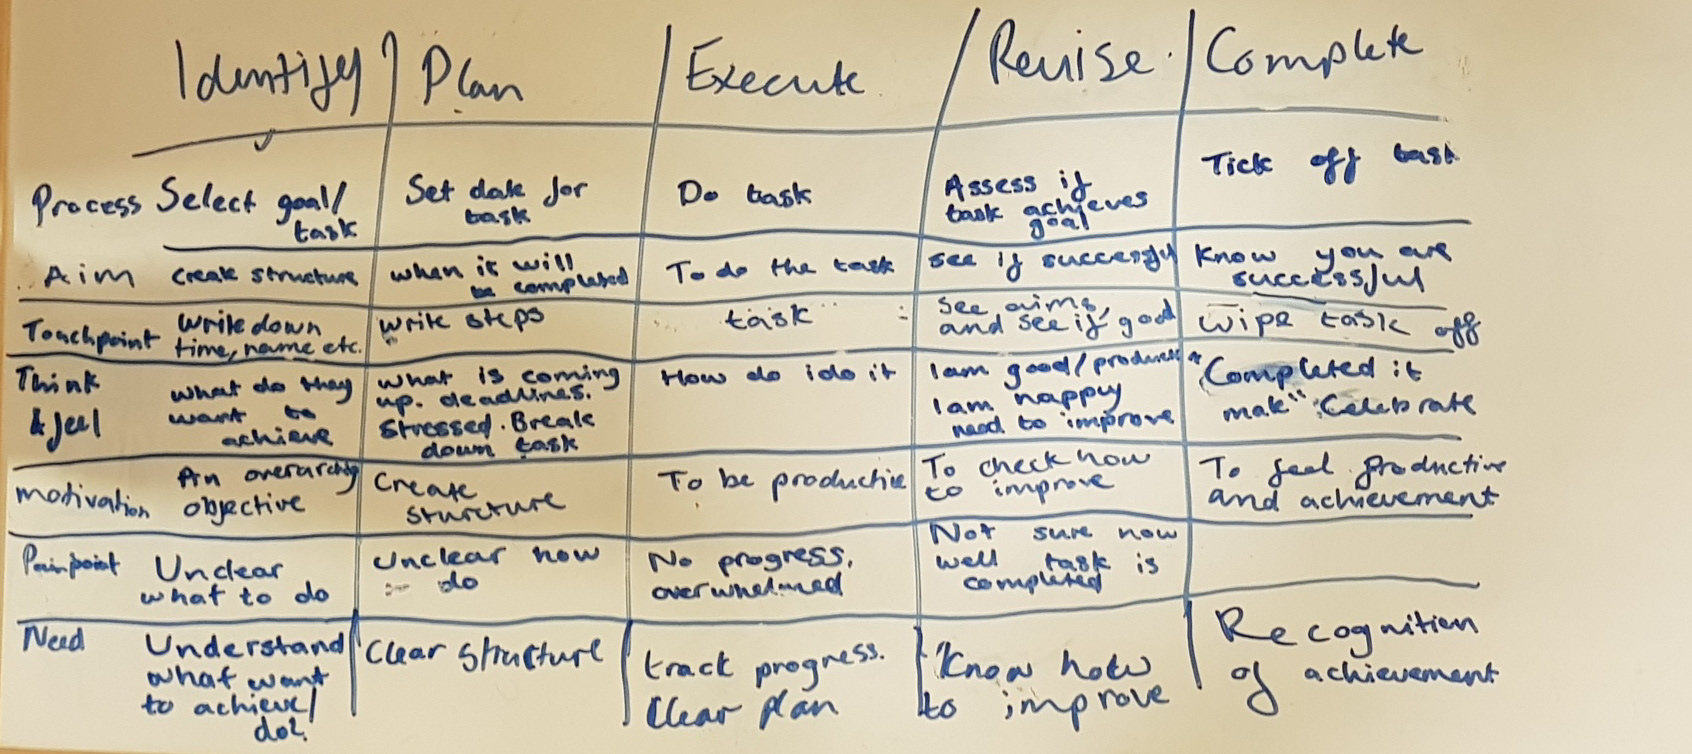 Identify Plan Execute Revise Complete
Process Select goal/ Set date for Do task Assess if Tick off task
task task task achieves
goal
Aim create structure when it will To do the task see if successful Know you are
be completed successful
Touchpoint write down write steps task see aims, wipe task off
time, name etc. and see if good
Think what do they what is coming How do i do it I am good/ "Completed it
& feel want to up. deadlines. I am happy mak" Celebrate
achieve Stressed. Break need to improve
down task
motivation An overarching Create To be productive To check how To feel productive
objective sturcture to improve and achievement
Painpoint Unclear Unclear how No progress, Not sure how
what to do do overwhelmed well task is
completed
Need Understand Clear structure track progress. Know how Recognition
what want Clear plan to improve of achievement
to achieve/
do?